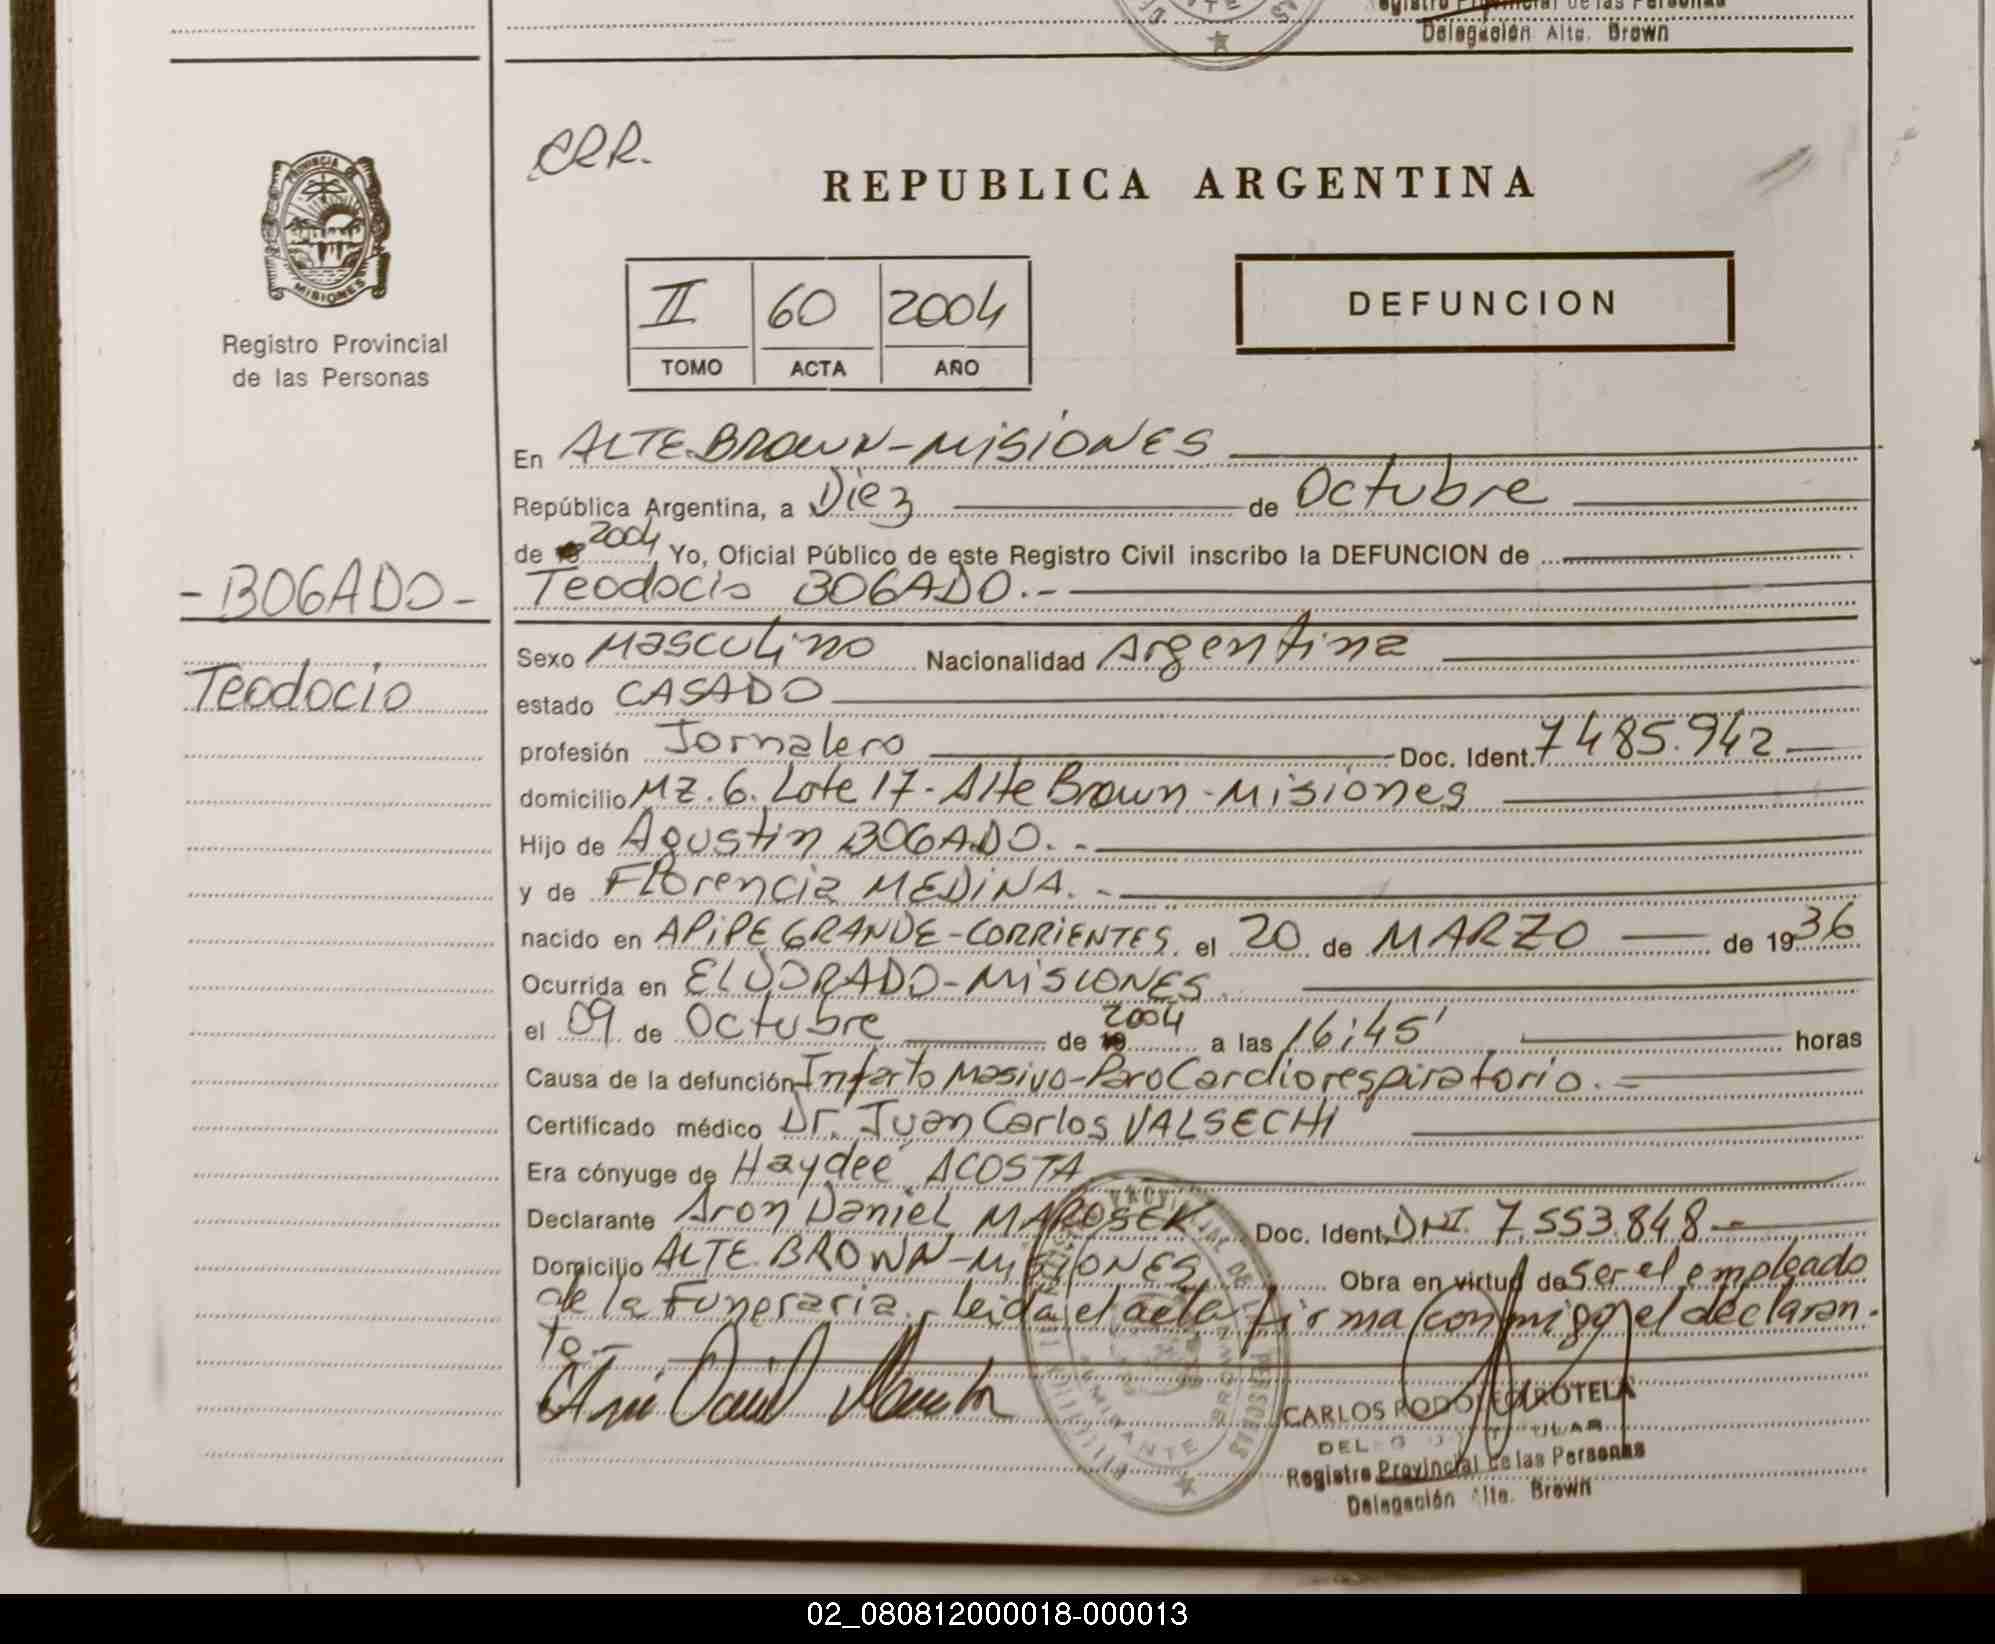 Registro Provincial de las Personas
Delegación Alte. Brown
CRR.
REPUBLICA ARGENTINA
PROVINCIA DE
MISIONES
Registro Provincial
de las Personas
II 60 2004
TOMO ACTA AÑO
DEFUNCION
En ALTE. BROWN-MISIONES
República Argentina, a Diez de Octubre
de 19 2004 Yo, Oficial Público de este Registro Civil inscribo la DEFUNCION de
- BOGADO -
Teodocio BOGADO.-
Sexo Masculino Nacionalidad Argentina
Teodocio
estado CASADO
profesión Jornalero Doc. Ident. 7485.942
domicilio MZ. 6. Lote 17 - Alte Brown - Misiones
Hijo de Agustin BOGADO. -
y de Florencia MEDINA. -
nacido en APIPE GRANDE-CORRIENTES. el 20 de MARZO de 1936
Ocurrida en ELDORADO-MISIONES.
el 09 de Octubre de 19 2004 a las 16:45' horas
Causa de la defunción Infarto Masivo-Paro Cardiorespiratorio. -
Certificado médico Dr. Juan Carlos VALSECHI
Era cónyuge de Haydeé ACOSTA
Declarante Aron Daniel MAROSEK Doc. Ident. DNI. 7.553.848.-
Domicilio ALTE. BROWN-MISIONES Obra en virtud de ser el empleado
de la Funeraria.- Leida el acta firma conmigo el declaran-
te.-
CARLOS RODOLFO ROTELA
DELEGADO TITULAR
Registro Provincial de las Personas
Delegación Alte. Brown
02_080812000018-000013